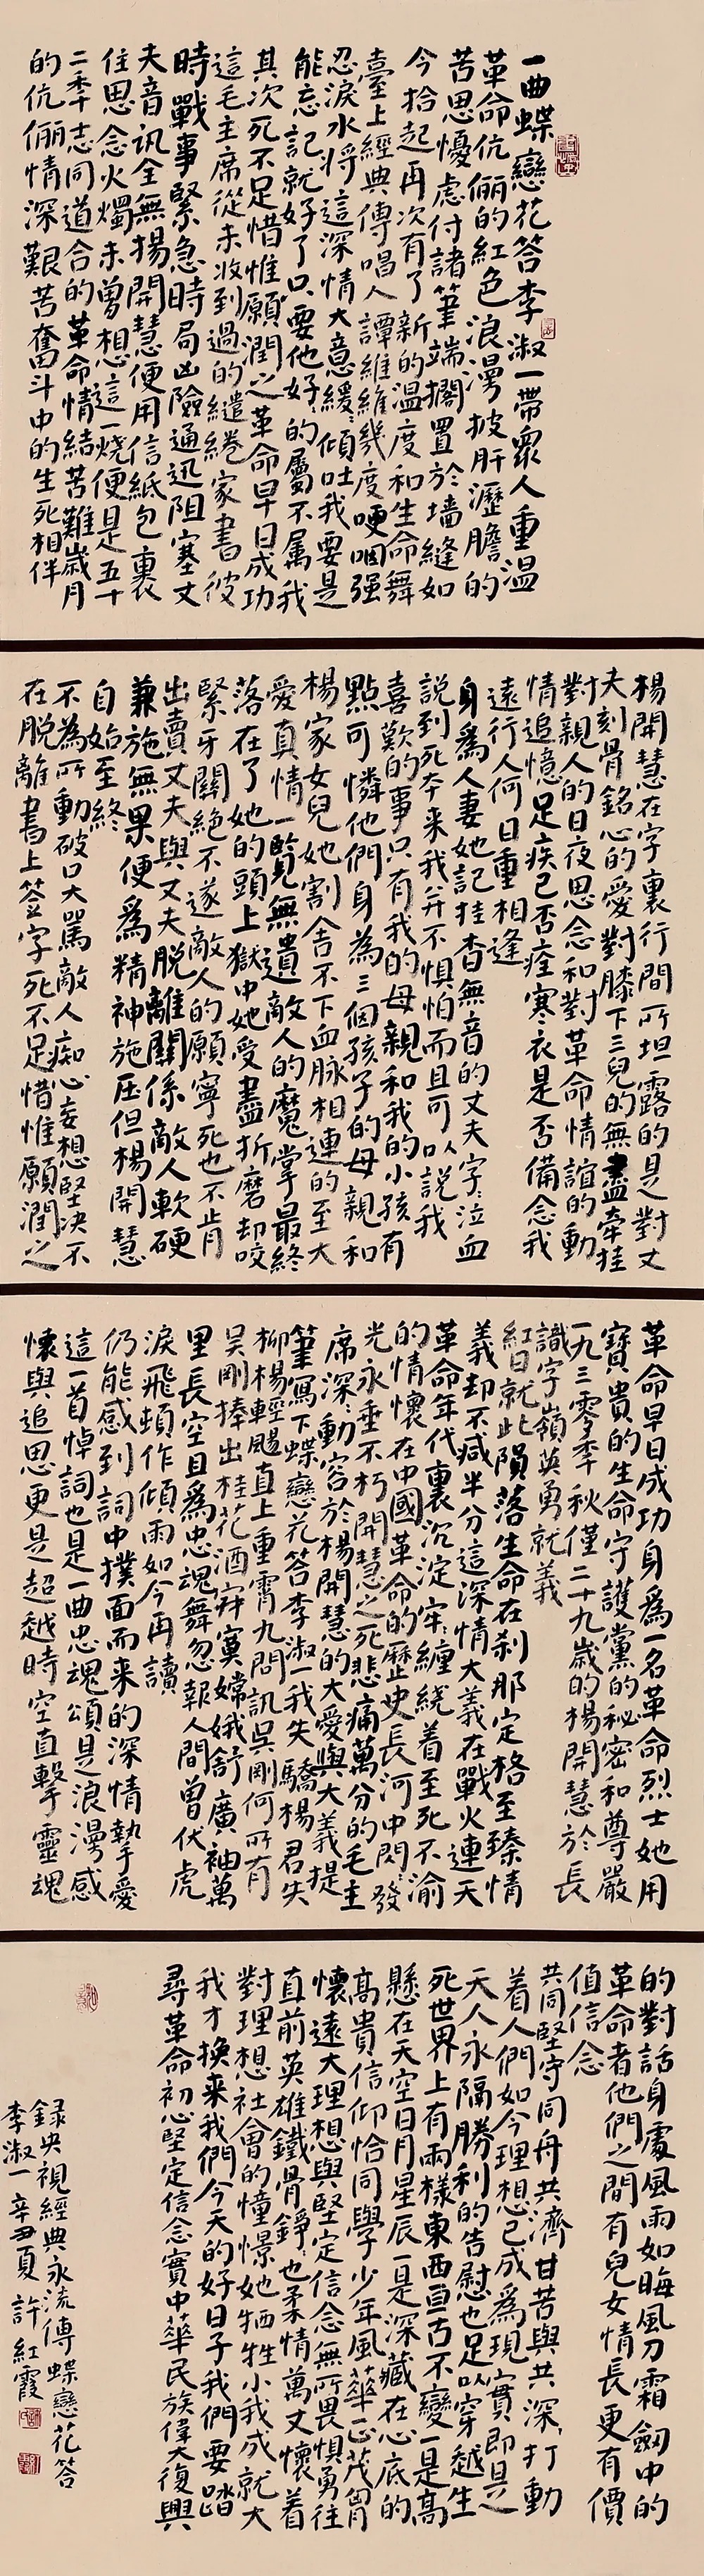 一曲蝶戀花答李淑一帶眾人重温
革命伉儷的紅色浪漫披肝瀝膽的
苦思憂慮付諸筆端擱置於墻縫如
今拾起再次有了新的温度和生命舞
臺上經典傳唱人譚維維幾度哽咽强
忍淚水將這深情大意緩緩傾吐我要是
能忘記就好了只要他好好的屬不属我
其次死不足惜惟願潤之革命早日成功
這毛主席從未收到過的繾綣家書彼
時戰事緊急時局凶險通迅阻塞丈
夫音訊全無揚開慧便用信紙包裹
住思念火燭未曾想這一燒便是五十
二年志同道合的革命情結苦難歲月
的伉儷情深艱苦奮斗中的生死相伴
楊開慧在字裏行間所坦露的是對丈
夫刻骨銘心的愛對膝下三兒的無盡牽挂
對親人的日夜思念和對革命情誼的動
情追憶足疾已否痊寒衣是否備念我
遠行人何日重相逢
身爲人妻她記挂杳無音的丈夫字字泣血
説到死本来我并不惧怕而且可以説我
喜歡的事只有我的母親和我的小孩有
點可憐他們身為三個孩子的母親和
楊家女兒她割舍不下血脉相連的至大
愛真情一覽無遺敵人的魔掌最終
落在了她的頭上獄中她受盡折磨却咬
緊牙關絕不遂敵人的願寧死也不肯
出賣丈夫與丈夫脱離關係敵人軟硬
兼施無果便爲精神施压但楊開慧
自始至終
不為所動破口大駡敵人痴心妄想堅决不
在脱離書上签字死不足惜惟願潤之
革命早日成功身爲一名革命烈士她用
寶貴的生命守護黨的秘密和尊嚴
一九三零年秋僅二十九歲的楊開慧於長
識字嶺英勇就義
紅日就此隕落生命在刹那定格至臻情
義却不减半分這深情大義在戰火連天
革命年代裏沉淀牢牢纏绕着至死不渝
的情懷在中國革命的歷史長河中閃閃發
光永垂不朽開慧之死悲痛萬分的毛主
席深深動容於楊開慧的大愛與大義提
筆寫下蝶戀花答李淑一我失驕楊君失
柳楊輕颺直上重霄九問訊吳剛何所有
吴剛捧出桂花酒寂寞嫦娥舒廣袖萬
里長空且爲忠魂舞忽報人間曾伏虎
淚飛頓作傾雨如今再讀
仍能感到詞中撲面而来的深情摯愛
這一首悼詞也是一曲忠魂頌是浪漫感
懷與追思更是超越時空直擊靈魂
的對話身處風雨如晦風刀霜劍中的
革命者他們之間有兒女情長更有價
值信念
共同堅守同舟共濟甘苦與共深深打動
着人們如今理想已成爲現實即是
天人永隔勝利的告慰也足以穿越生
死世界上有兩樣東西亘古不變一是高
懸在天空日月星辰一是深藏在心底的
高貴信仰恰同學少年風華正茂胸
懷遠大理想與堅定信念無所畏惧勇往
直前英雄鐵骨錚錚也柔情萬丈懷着
對理想社會的憧憬她牺牲小我成就大
我才換来我們今天的好日子我們要踏
尋革命初心堅定信念實中華民族偉大復興
録央視經典永流傳蝶戀花答
李淑一辛丑夏 許紅霞